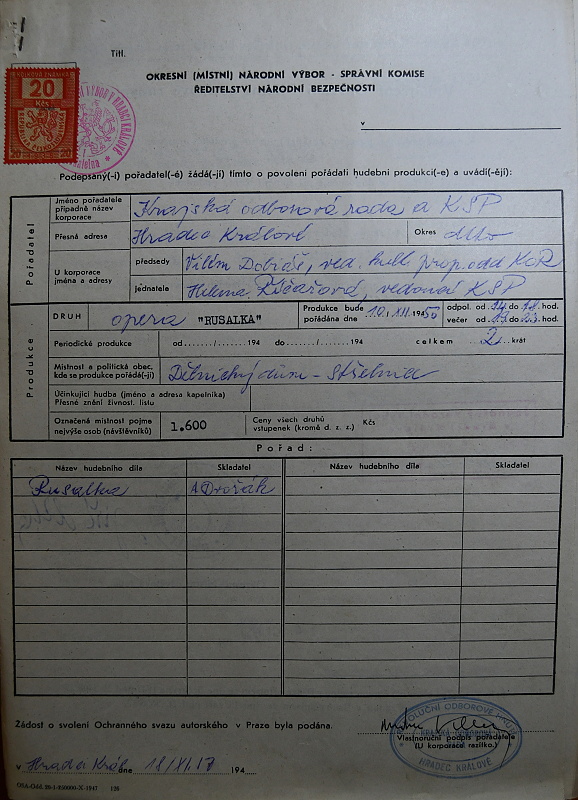 Titl.
KOLKOVÁ ZNÁMKA
20
Kčs
OKRESNÍ (MÍSTNÍ) NÁRODNÍ VÝBOR - SPRÁVNÍ KOMISE
ŘEDITELSTVÍ NÁRODNÍ BEZPEČNOSTI
v
Podepsaný(-í) pořadatel(-é) žádá(-jí) tímto o povolení pořádati hudební produkci(-e) a uvádí(-ějí):
Pořadatel
Jméno pořadatele případně název korporace Krajská odborová rada a KSP
Přesná adresa Hradec Králové Okres dtto
U korporace jména a adresy
předsedy Vilém Dobiáš, ved. kult. prop. odd KOR
jednatele Helena, vedoucí KSP
Produkce
DRUH opera "RUSALKA" Produkce bude pořádána dne 10./XII. 1950 odpol. od 14 do 18. hod.
večer od 19. do 23. hod.
Periodické produkce od ....../...... 194 do ....../...... 194 celkem 2. krát
Místnost a politická obec, kde se produkce pořádá(-jí) Dělnický dům - Střelnice
Účinkující hudba (jméno a adresa kapelníka)
Přesné znění živnost. listu
Označená místnost pojme nejvýše osob (návštěvníků) 1.600 Ceny všech druhů vstupenek (kromě d. z. z.) Kčs
Pořad:
Název hudebního díla Skladatel Název hudebního díla Skladatel
Rusalka A Dvořák
Žádost o svolení Ochranného svazu autorského v Praze byla podána.
Vlastnoruční podpis pořadatele
(U korporací razítko.)
HRADEC KRÁLOVÉ
v Hradci Král. dne 18/XI. 194